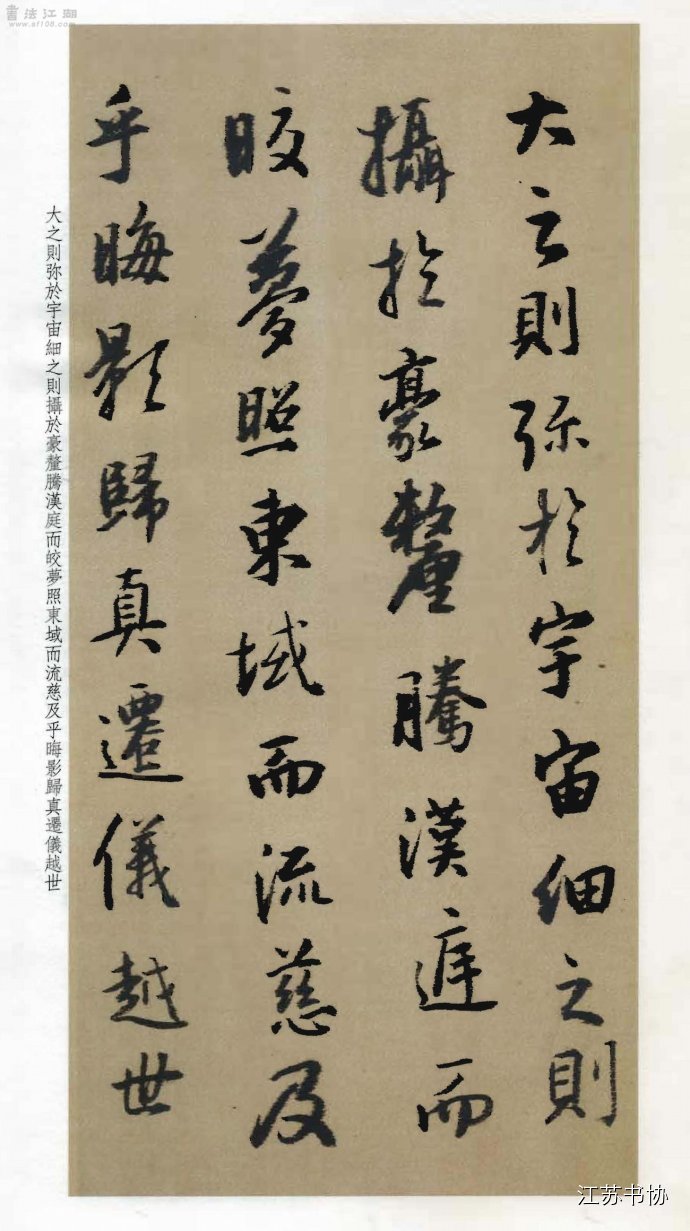 書法江湖
www.sf108.com
大之則弥於宇宙細之則
攝於豪釐騰漢庭而
皎夢照東域而流慈及
乎晦影歸真遷儀越世
大之則弥於宇宙細之則攝於豪釐騰漢庭而皎夢照東域而流慈及乎晦影歸真遷儀越世
江苏书协